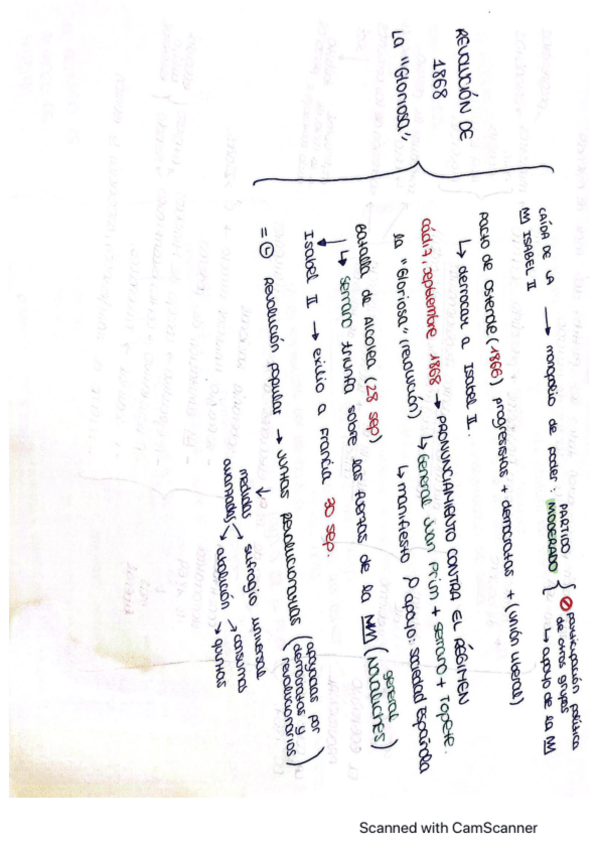 REVOLUCIÓN DE
1868
LA "Gloriosa"
CAÍDA DE LA → monopolio de poder: PARTIDO MODERADO { participación política
de otros grupos
↳ apoyo de la M
M ISABEL II
Pacto de Ostende (1866) progresistas + demócratas + (unión liberal)
↳ derrocar a Isabel II.
Cádiz, septiembre 1868 → PRONUNCIAMIENTO CONTRA EL RÉGIMEN
la "Gloriosa" (revolución) ↳ General Juan Prim + Serrano + Topete.
↳ manifiesto p apoyo: sociedad Española
Batalla de Alcolea (28 sep)
↳ Serrano triunfa sobre las fuerzas de la M (general Novaliches)
Isabel II → exilio a Francia 30 sep.
= Revolución popular → Juntas Revolucionarias (apoyadas por
demócratas y
revolucionarios)
↓
medidas → sufragio universal
avanzadas → abolición → consumos
→ quintas
Scanned with CamScanner